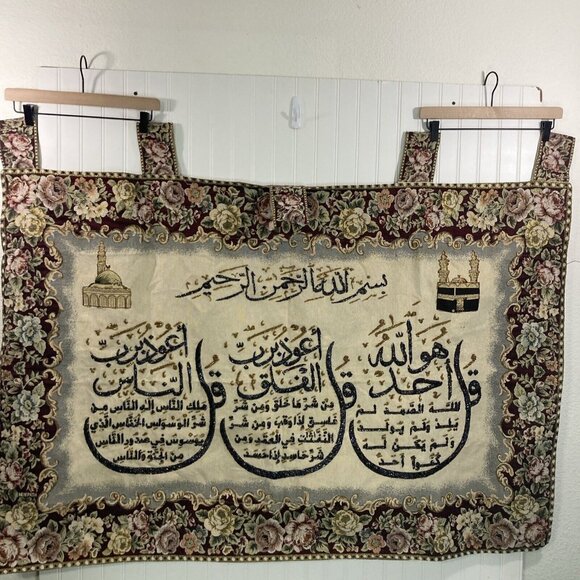 بسم الله الرحمن الرحيم
قل هو الله
أحد
الله الصمد لم
يلد ولم يولد
ولم يكن له
كفوا أحد
قل أعوذ برب
الفلق
من شر ما خلق ومن شر
غاسق إذا وقب ومن شر
النفاثات في العقد ومن
شر حاسد إذا حسد
قل أعوذ برب
الناس
ملك الناس إله الناس من
شر الوسواس الخناس الذي
يوسوس في صدور الناس
من الجنة والناس